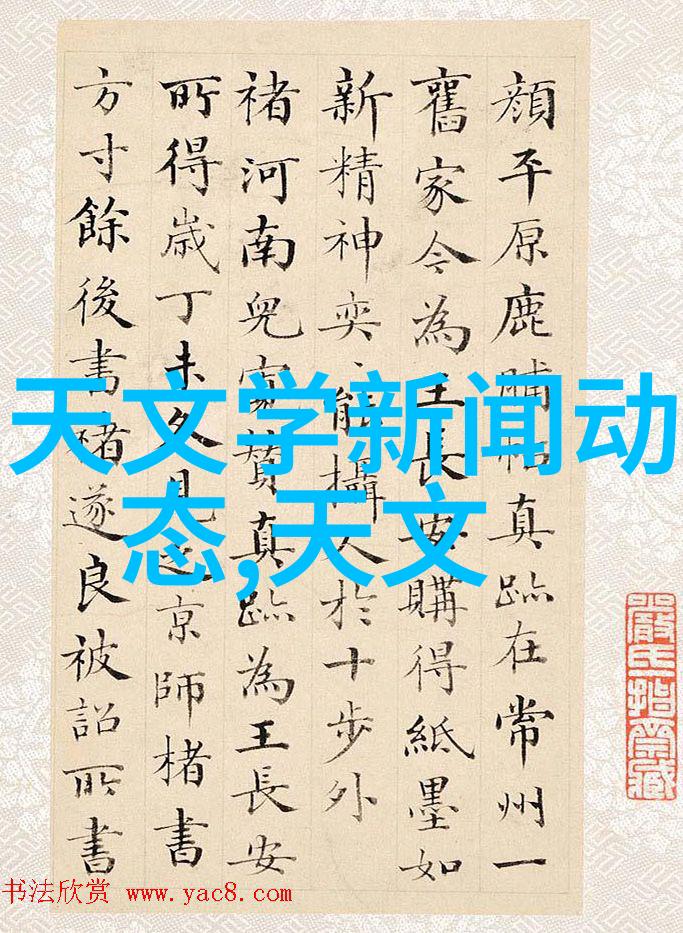 顔平原鹿脯帖真跡在常州一
舊家今為王長安購得紙墨如
新精神奕、能攝人於十步外
褚河南兒寬贊真跡為王長安
所得歲丁未久見京師楮書
方寸餘後書褚遂良被詔所書
天文学新闻动
态,天文
书法欣赏 www.yac8.com